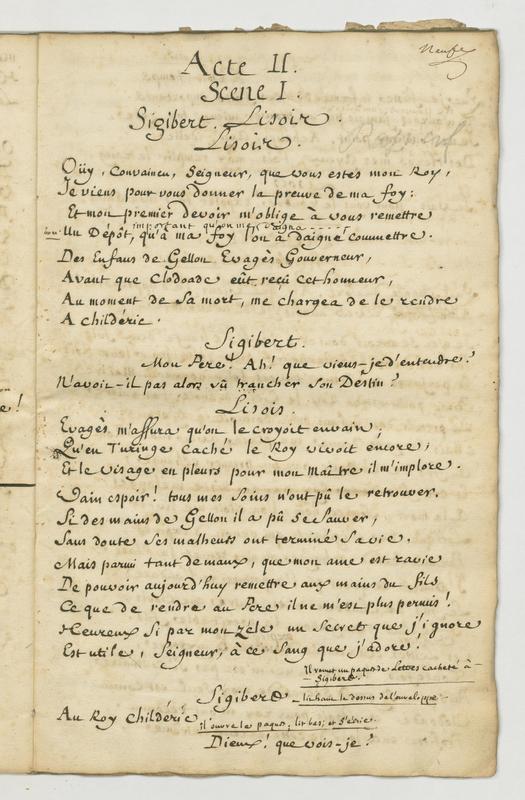 Neufe
Acte II.
Scene I.
Sigibert. Lisoir.
Lisoir.
Oüy, Convaincu, Seigneur, que vous estes mon Roy,
Je viens pour vous donner la preuve de ma foy:
Et mon premier devoir m'oblige à vous remettre
important qu'on me daigna - - - - -
Un Dépôt, qu'à ma foy l'on à daigné commettre.
Des Enfans de Gellon Evagès Gouverneur,
Avant que Clodoade eût reçû cet honneur,
Au moment de Sa mort, me chargea de le rendre
A childéric.
Sigibert.
Mon Pere! Ah! que viens-je d'entendre?
N'avoit-il pas alors vû trancher Son Destin?
Lisois.
Evagès m'assura qu'on le croyoit envain;
Qu'en Turinge Caché le Roy vivoit encore;
Et le visage en pleurs pour mon Maître il m'implore.
Vain espoir! tous mes Soins n'ont pû le retrouver.
Si des mains de Gellon il a pû se Sauver,
Sans doute Ses malheurs ont terminé Sa vie.
Mais parmi tant de maux, que mon ame est ravie
De pouvoir aujourd'huy remettre aux mains du fils
Ce que de rendre au Pere il ne m'est plus permis!
Heureux Si par mon zéle un Secret que j'ignore
Est utile, Seigneur, à ce Sang que j'adore!
Il remet un paquet de Lettres cacheté à
- Sigibert.
Sigibert - lit haut le dessus de l'enveloppe -
Au Roy Childéric
il ouvre le paquet, lit bas; et S'écrie.
Dieux! que vois-je?